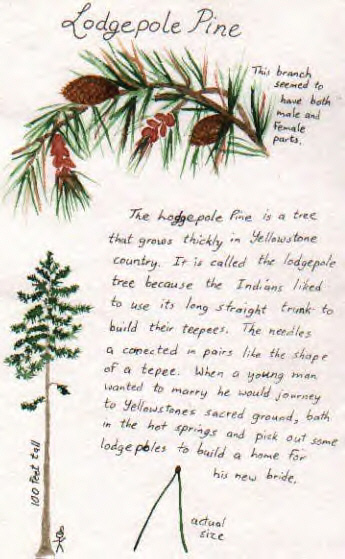 Lodgepole Pine
This branch
seemed to
have both
male and
female
parts.
The Lodgepole Pine is a tree
that grows thickly in Yellowstone
country. It is called the lodgepole
tree because the Indians liked
to use its long straight trunk to
build their teepees. The needles
a conected in pairs like the shape
of a tepee. When a young man
wanted to marry he would journey
to Yellowstones sacred ground, bath
in the hot springs and pick out some
lodgepoles to build a home for
his new bride.
100 Feet tall
actual
size